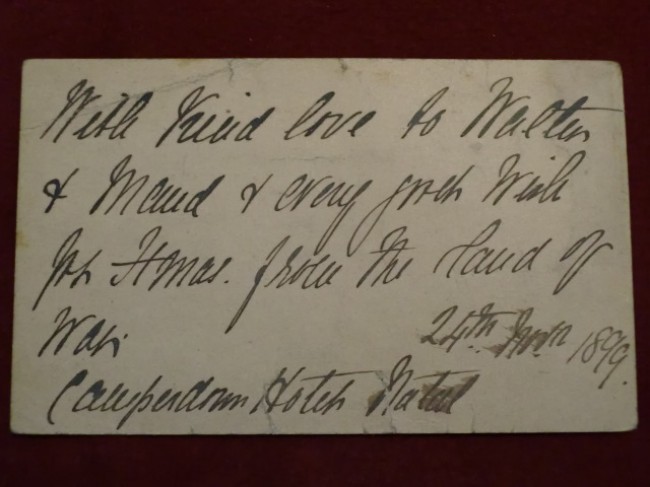 With Kind love to Walter
& Maud & every good Wish
for Xmas. from the Land of
War.
24th Novr 1899.
Camperdown Hotel Natal